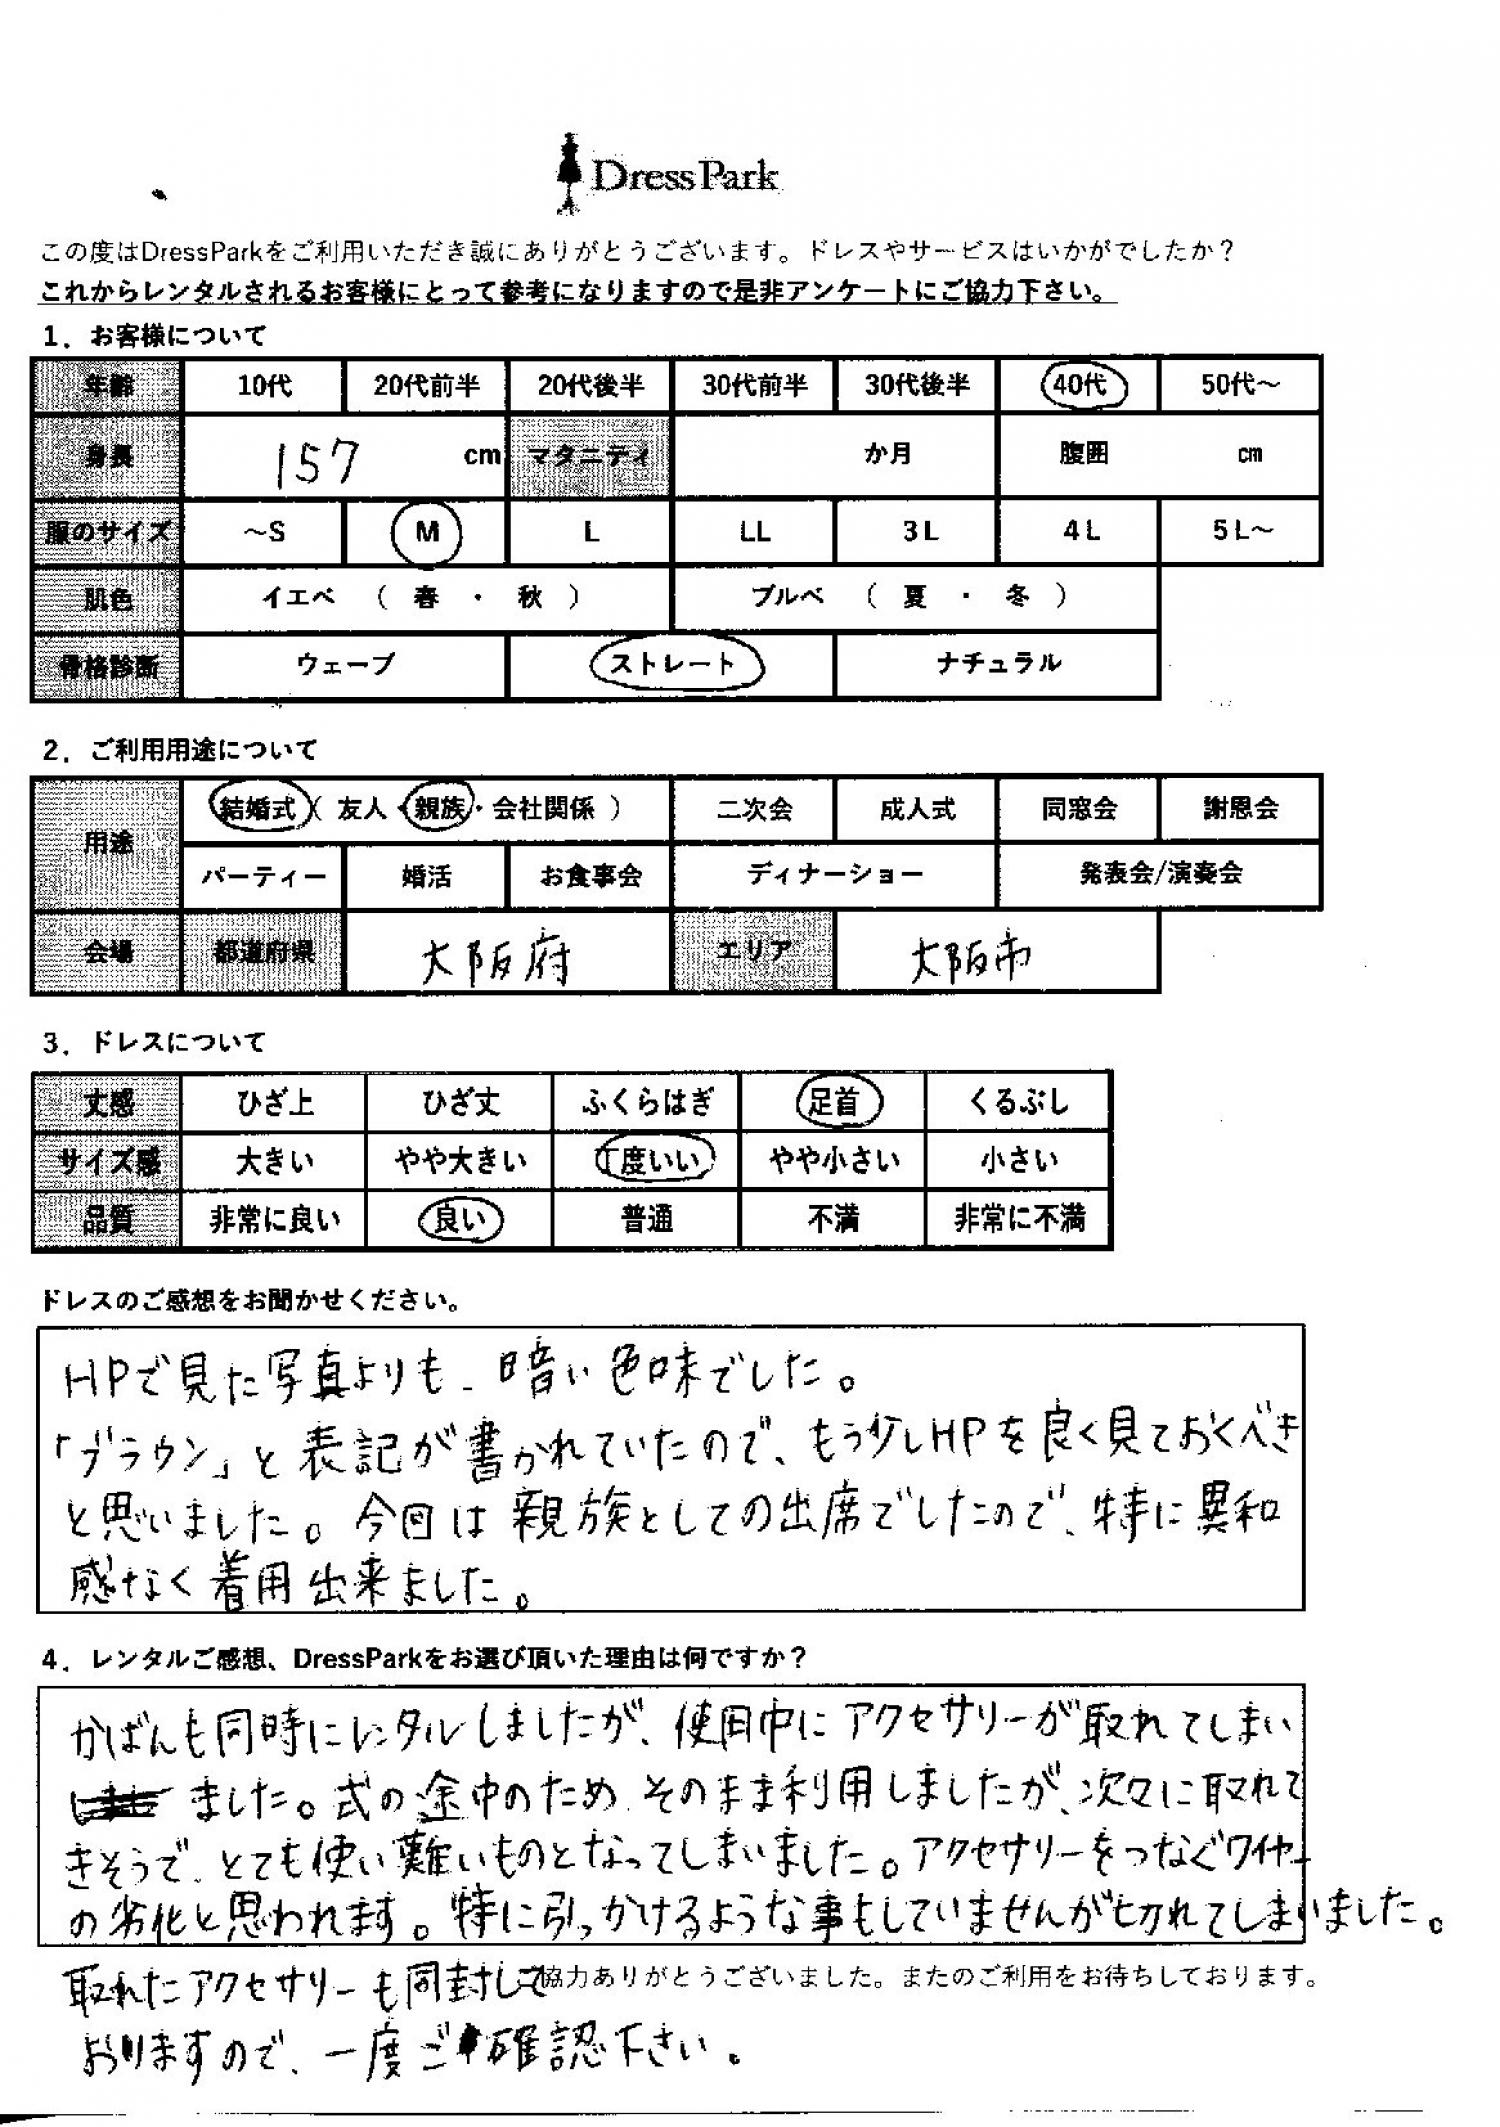 DressPark
この度はDressParkをご利用いただき誠にありがとうございます。ドレスやサービスはいかがでしたか？
これからレンタルされるお客様にとって参考になりますので是非アンケートにご協力下さい。
1．お客様について
年齢 10代 20代前半 20代後半 30代前半 30代後半 40代 50代～
身長 157 cm マタニティ か月 腹囲 cm
服のサイズ ～S M L LL 3L 4L 5L～
肌色 イエベ （ 春 ・ 秋 ） ブルベ （ 夏 ・ 冬 ）
骨格診断 ウェーブ ストレート ナチュラル
2．ご利用用途について
用途 結婚式（ 友人・親族・会社関係 ） 二次会 成人式 同窓会 謝恩会
パーティー 婚活 お食事会 ディナーショー 発表会/演奏会
会場 都道府県 大阪府 エリア 大阪市
3．ドレスについて
丈感 ひざ上 ひざ丈 ふくらはぎ 足首 くるぶし
サイズ感 大きい やや大きい 丁度いい やや小さい 小さい
品質 非常に良い 良い 普通 不満 非常に不満
ドレスのご感想をお聞かせください。
HPで見た写真よりも、暗い色味でした。
「ブラウン」と表記が書かれていたので、もう少しHPを良く見ておくべき
と思いました。今回は親族としての出席でしたので、特に異和
感なく着用出来ました。
4．レンタルご感想、DressParkをお選び頂いた理由は何ですか？
かばんも同時にレンタルしましたが、使用中にアクセサリーが取れてしまい
ました。式の途中のため、そのまま利用しましたが、次々に取れて
きそうで、とても使い難いものとなってしまいました。アクセサリーをつなぐワイヤー
の劣化と思われます。特に引っかけるような事もしていませんが切れてしまいました。
協力ありがとうございました。またのご利用をお待ちしております。
取れたアクセサリーも同封して
おりますので、一度ご確認下さい。